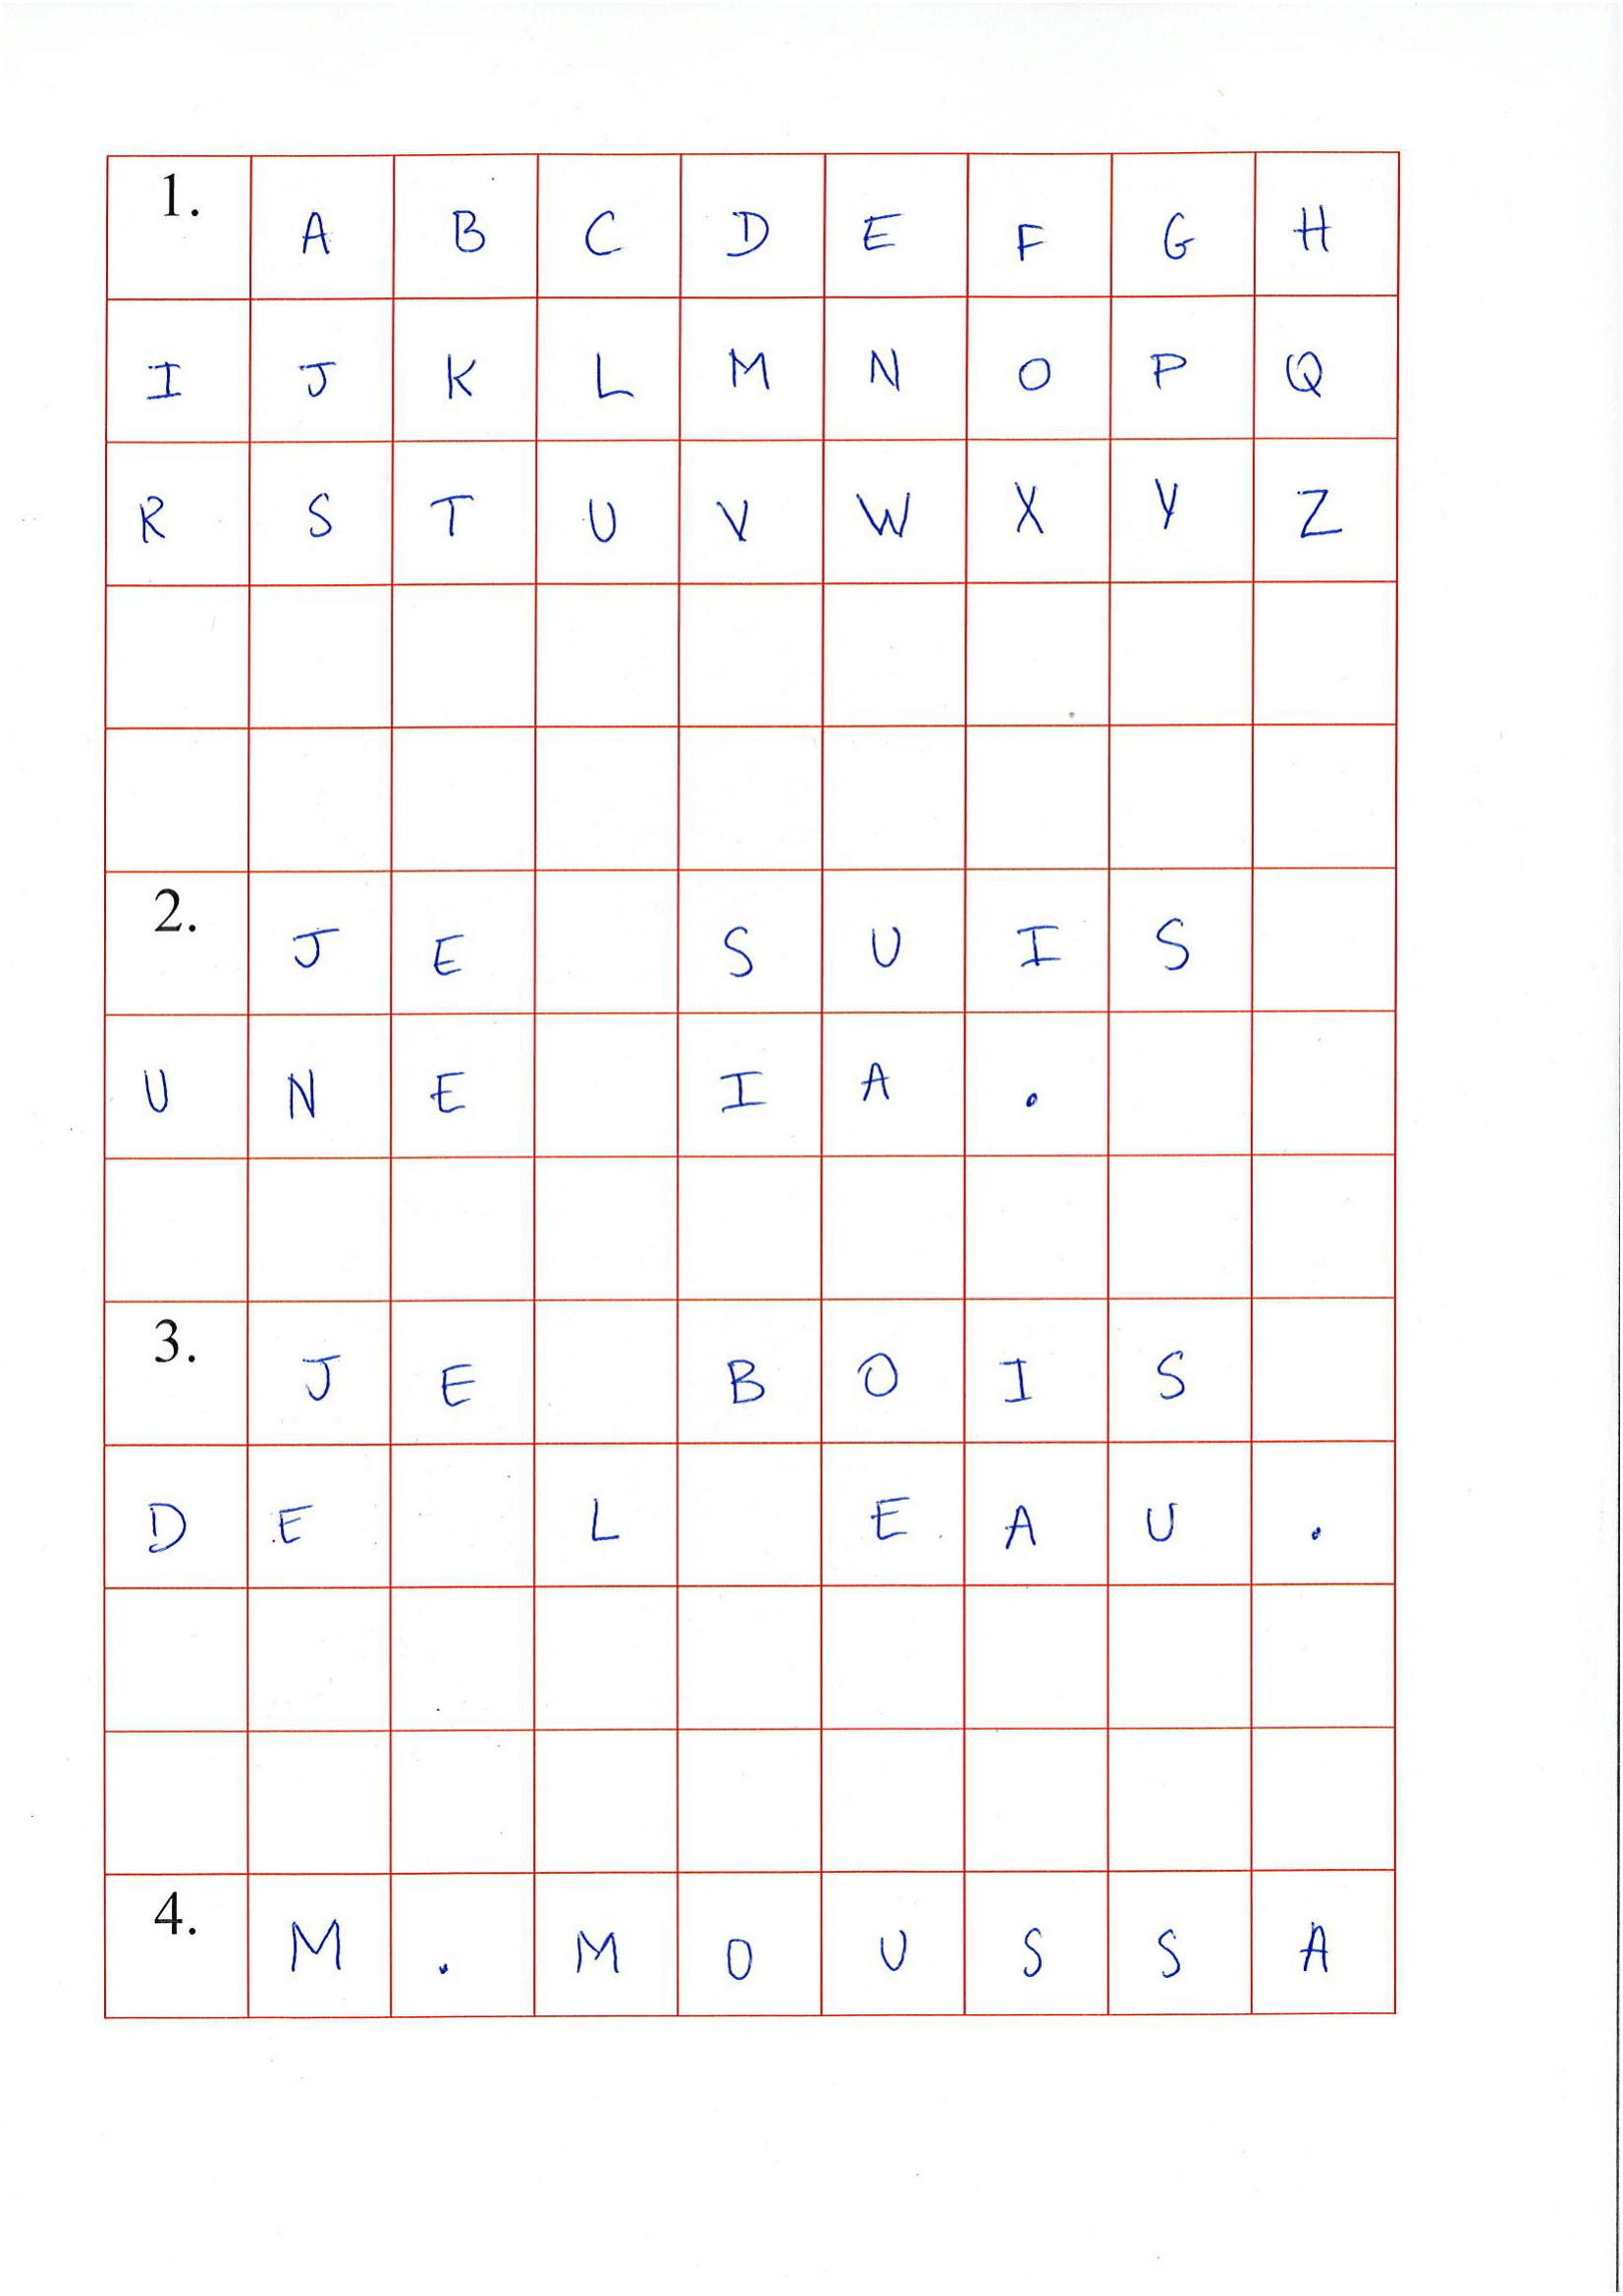 1. A B C D E F G H
I J K L M N O P Q
R S T U V W X Y Z
2. J E S U I S
U N E I A .
3. J E B O I S
D E L E A U .
4. M . M O U S S A